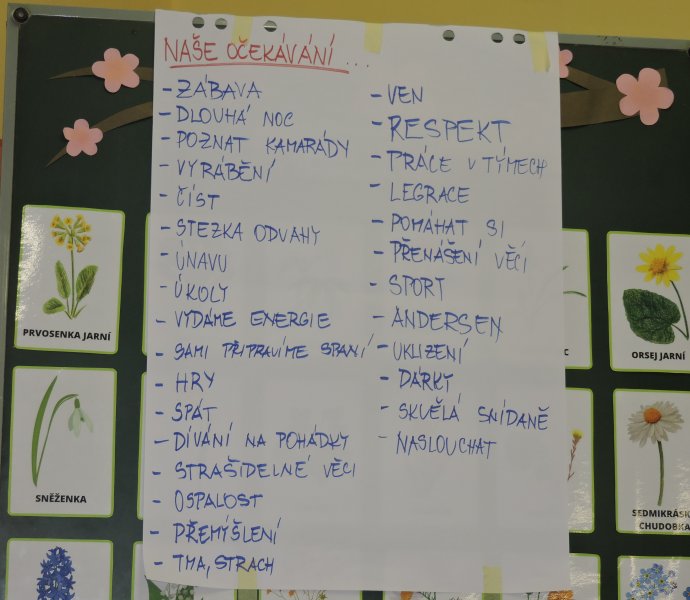 NAŠE OČEKÁVÁNÍ...
- ZÁBAVA
- DLOUHÁ NOC
- POZNAT KAMARÁDY
- VYRÁBĚNÍ
- ČÍST
- STEZKA ODVAHY
- ÚNAVU
- ÚKOLY
- VYDÁME ENERGIE
- SAMI PŘIPRAVÍME SPANÍ
- HRY
- SPÁT
- DÍVÁNÍ NA POHÁDKY
- STRAŠIDELNÉ VĚCI
- OSPALOST
- PŘEMÝŠLENÍ
- TMA, STRACH
- VEN
- RESPEKT
- PRÁCE V TÝMECH
- LEGRACE
- POMÁHAT SI
- PŘENÁŠENÍ VĚCÍ
- SPORT
- ANDERSEN
- UKLIZENÍ
- DÁRKY
- SKVĚLÁ SNÍDANĚ
- NASLOUCHAT
PRVOSENKA JARNÍ
SNĚŽENKA
C
ORSEJ JARNÍ
SEDMIKRÁSK
CHUDOBKA